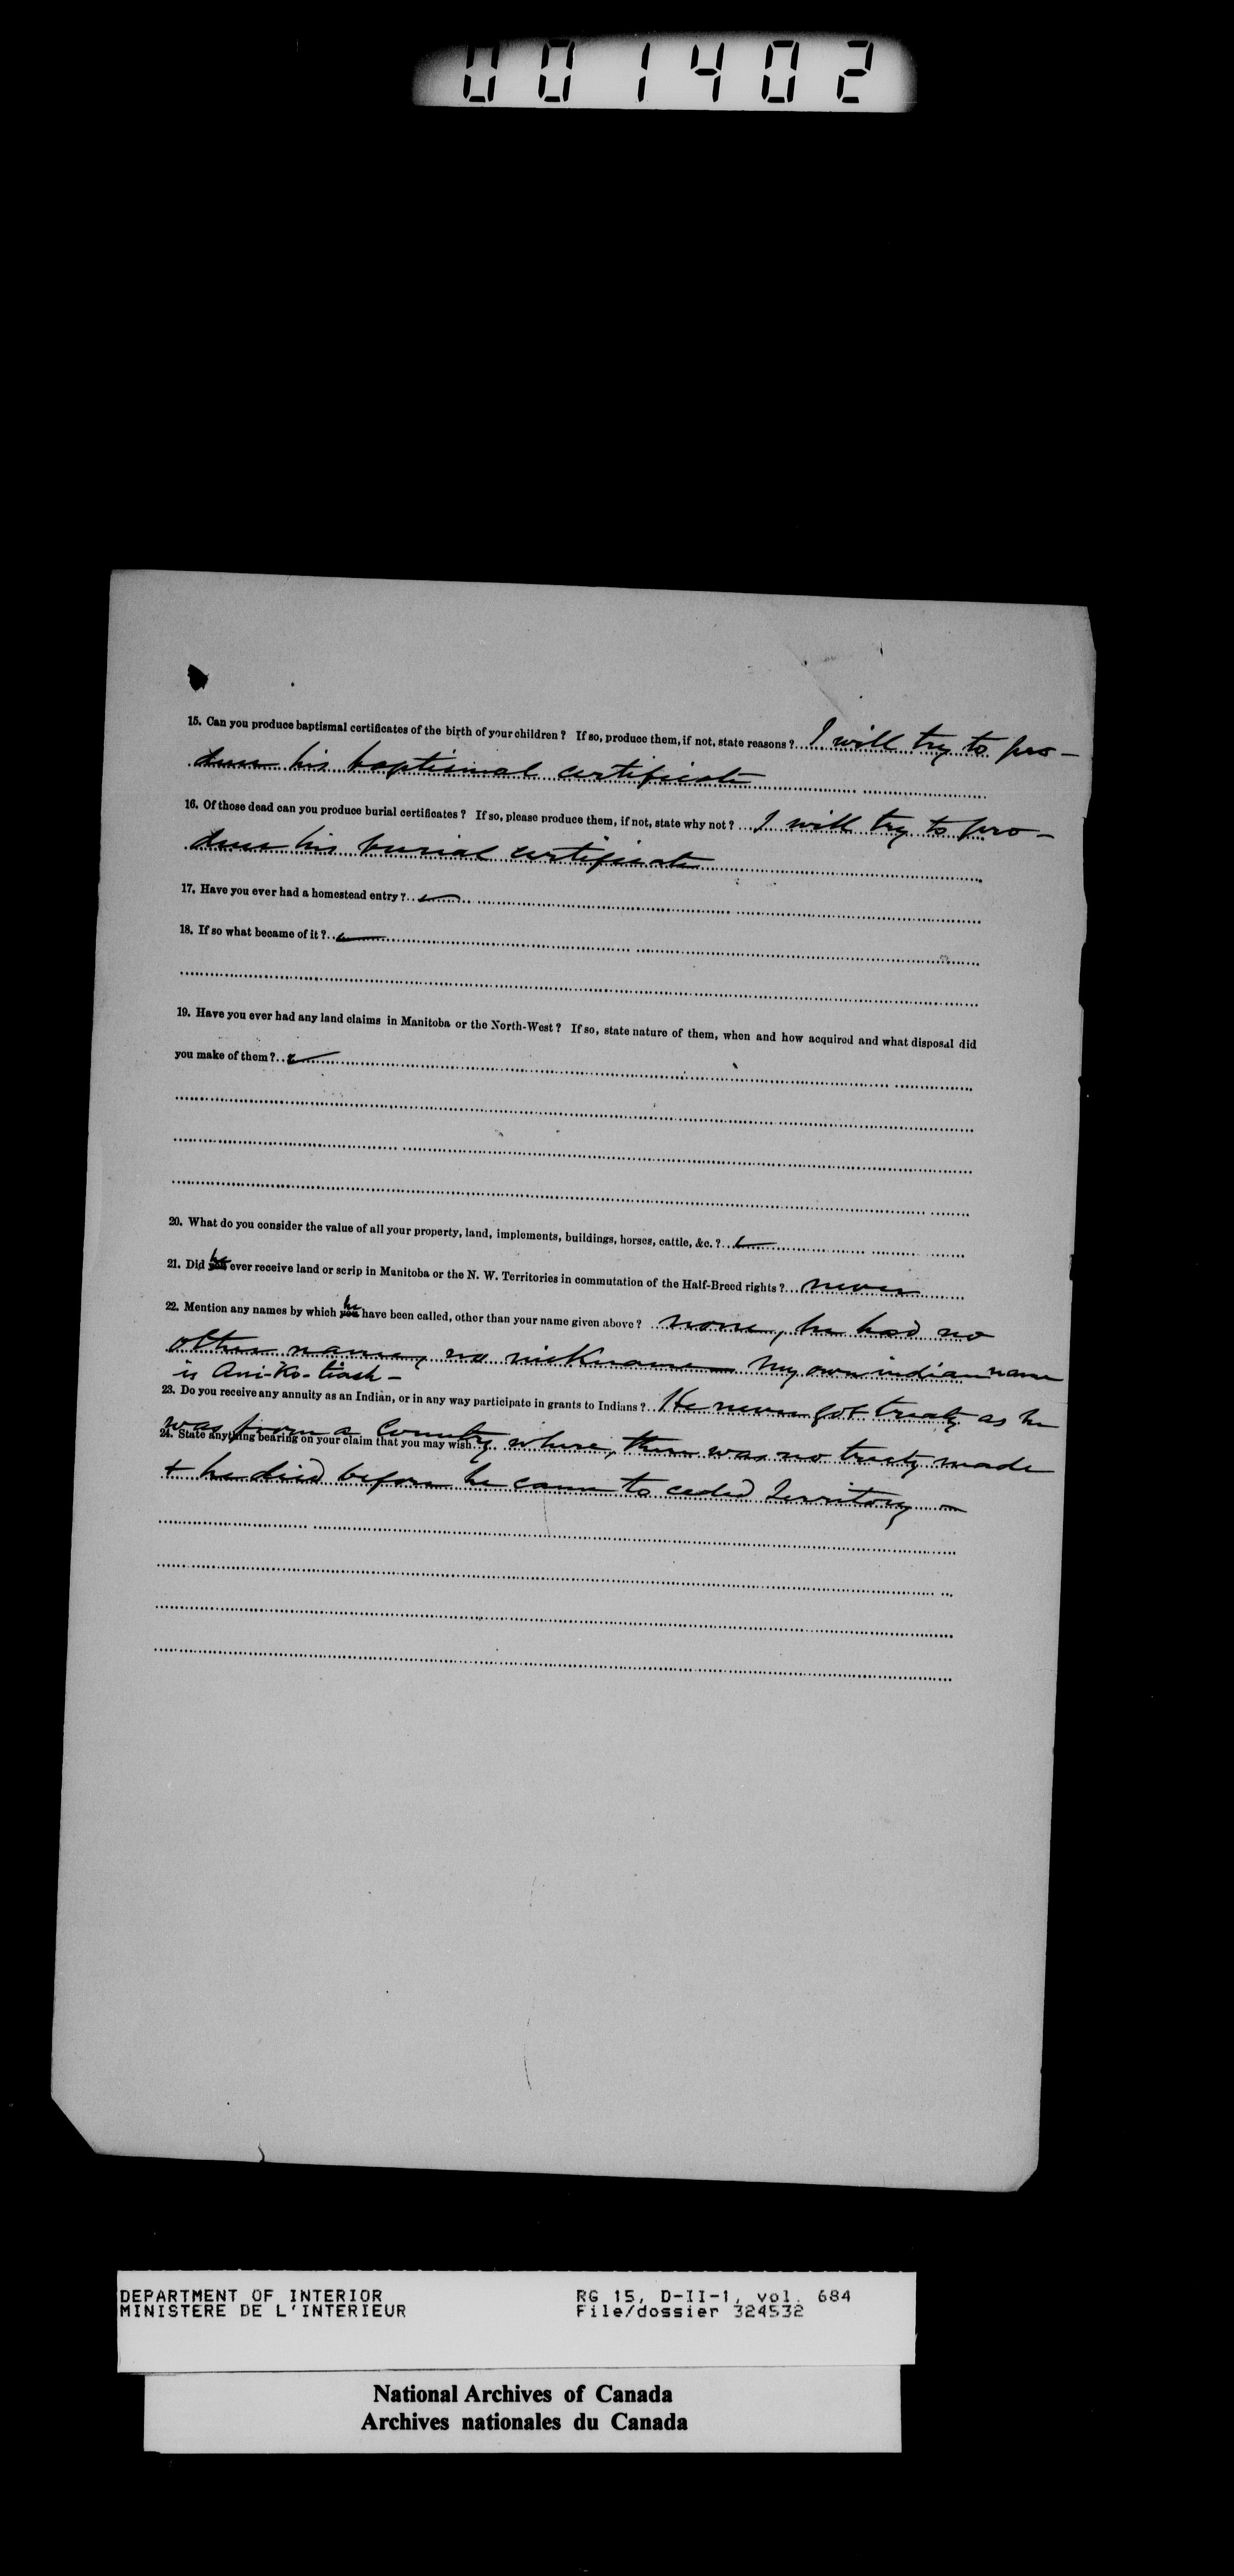 001402
15. Can you produce baptismal certificates of the birth of your children? If so, produce them, if not, state reasons? I will try to pro-
duce his baptismal certificate
16. Of those dead can you produce burial certificates? If so, please produce them, if not, state why not? I will try to pro-
duce his burial certificate
17. Have you ever had a homestead entry?
18. If so what became of it?
19. Have you ever had any land claims in Manitoba or the North-West? If so, state nature of them, when and how acquired and what disposal did
you make of them?
20. What do you consider the value of all your property, land, implements, buildings, horses, cattle, &c.?
21. Did he ever receive land or scrip in Manitoba or the N. W. Territories in commutation of the Half-Breed rights? never
22. Mention any names by which he have been called, other than your name given above? none, he had no
other name, no nickname My own indian name
is Ani-Ko-tiash -
23. Do you receive any annuity as an Indian, or in any way participate in grants to Indians? He never got treaty as he
was from a Country where, there was no treaty made
24. State anything bearing on your claim that you may wish
+ he died before he came to ceded Territory -
DEPARTMENT OF INTERIOR RG 15, D-II-1, vol. 684
MINISTERE DE L'INTERIEUR File/dossier 324532
National Archives of Canada
Archives nationales du Canada